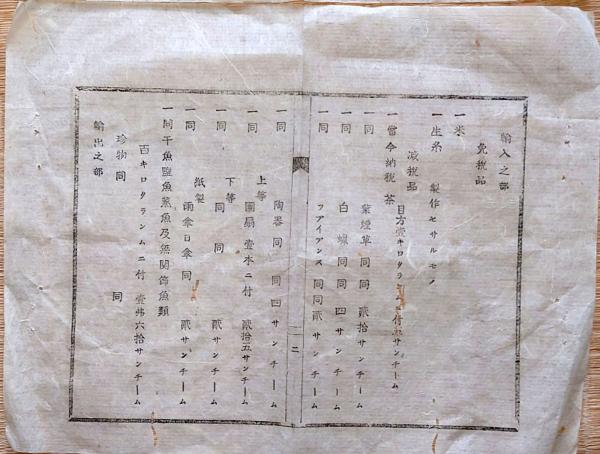 輸入之部
免税品
一米
一生糸 製作セサルモノ
減税品
一當今納税 茶 目方壹キログラムニ付五サンチーム
一同 葉煙草 同 同 貳拾サンチーム
一同 白蠟 同 同 四サンチーム
一同 フアイアンス 同 同 貳サンチーム
二
一同 陶器 同 同 四サンチーム
一同 上等 團扇壹本ニ付 貳拾五サンチーム
一同 下等 同 同 貳サンチーム
一同 紙製 雨傘日傘 同 貳サンチーム
一同 干魚鹽魚蒸魚及無関飾魚類
百キログラムニ付 壹弗六拾サンチーム
珍物 同 同
輸出之部